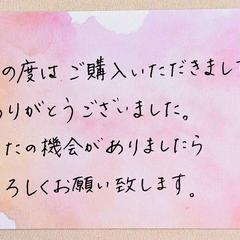 の度は ご購入いただきまして
ありがとうございました。
たの機会がありましたら
ろしくお願い致します。